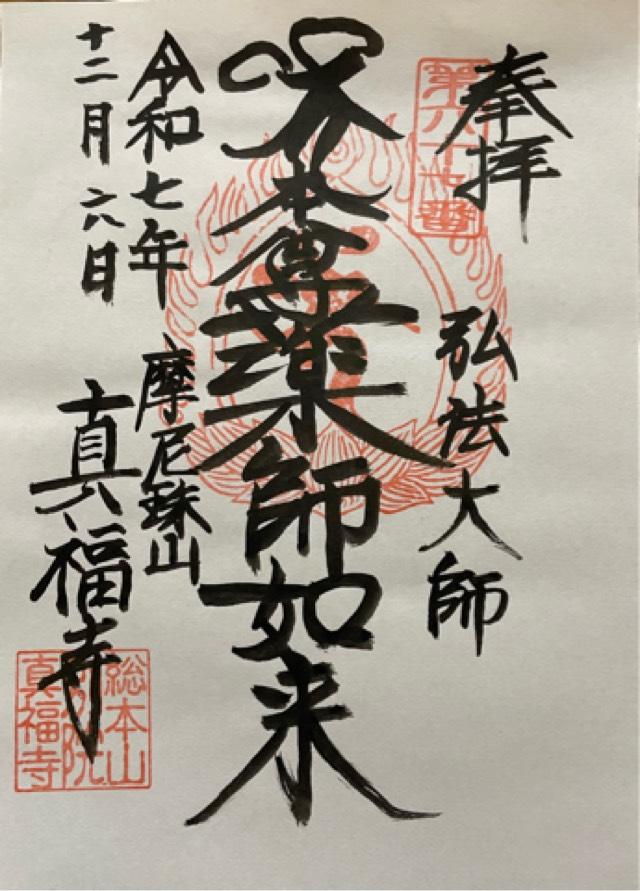 奉拝
第六十七番
弘法大師
本尊薬師如来
令和七年
十二月六日
摩尼珠山
真福寺
総本山
別院
真福寺